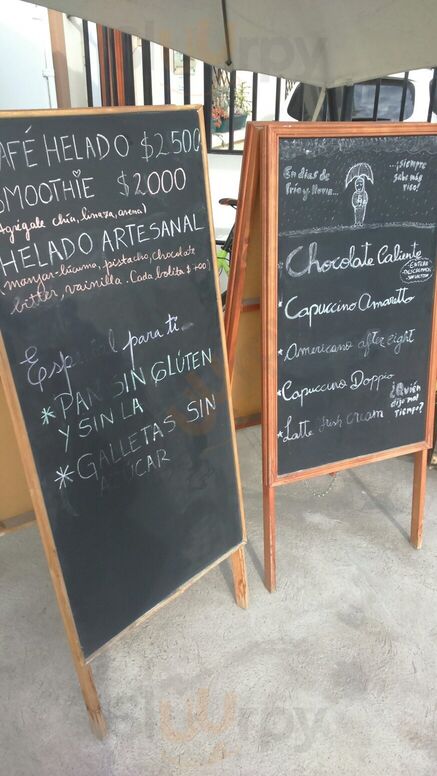 CAFÉ HELADO $2.500
SMOOTHIE $2000
Agrégale chía, linaza, avena)
HELADO ARTESANAL
(manjar-lúcuma, pistacho, chocolate
bitter, vainilla. Cada bolita
Especial para ti...
*PAN SIN GLÚTEN
Y SIN LA
*GALLETAS SIN
AZÚCAR
En días de
frío y lluvia...
...¡siempre
sabe más
rico!
*Chocolate Caliente
*Capuccino Amaretto
*Americano after eight
*Capuccino Doppio
*Latte Irish Cream
¿Quién
dijo mal
tiempo?
Sluurpy